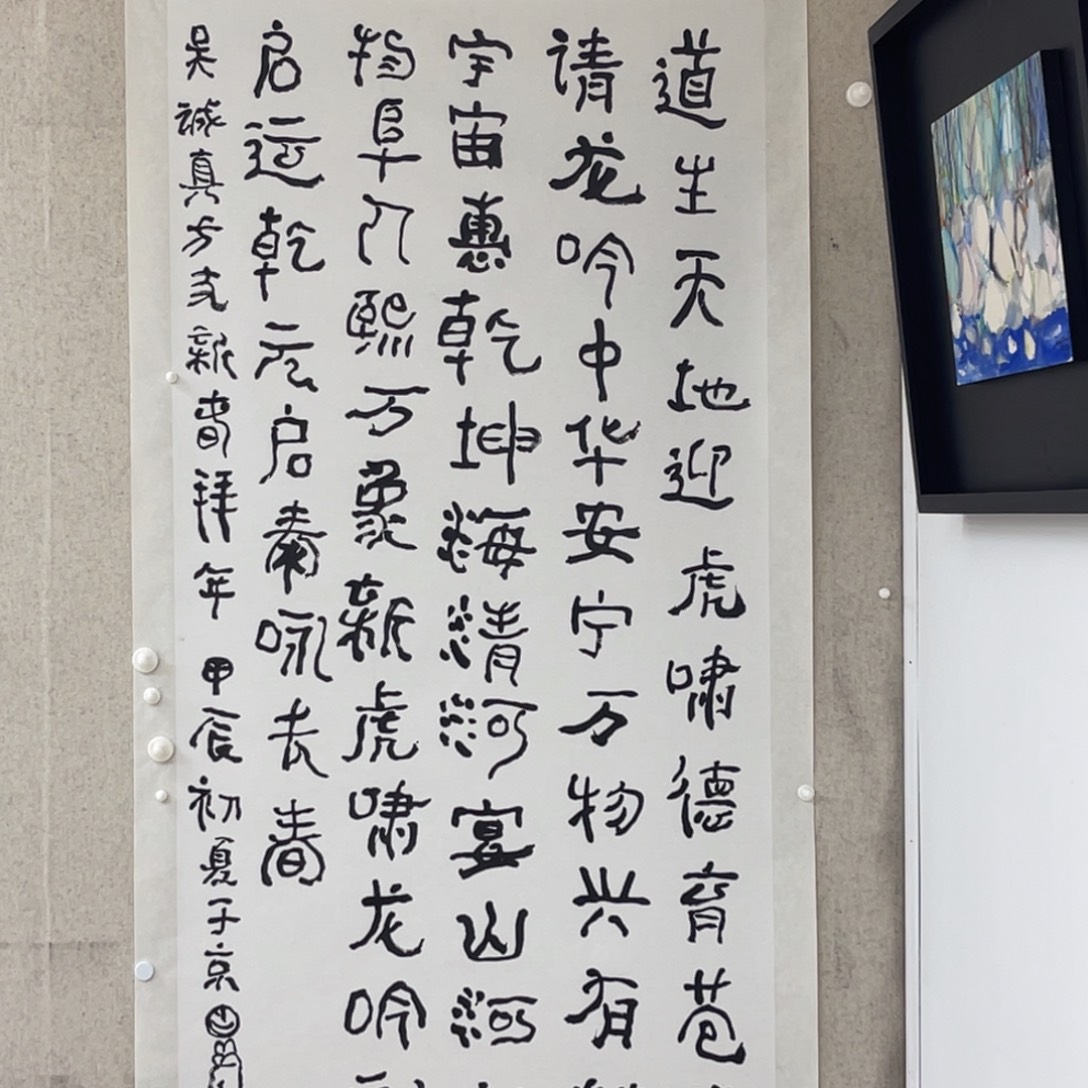 道生天地迎虎啸德育苍
请龙吟中华安宁万物兴有
宇宙惠乾坤海清河宴山河
物阜门熙万象新虎啸龙吟
启运乾元启奏咏去春
吴诚真方克新春拜年 甲辰初夏于京